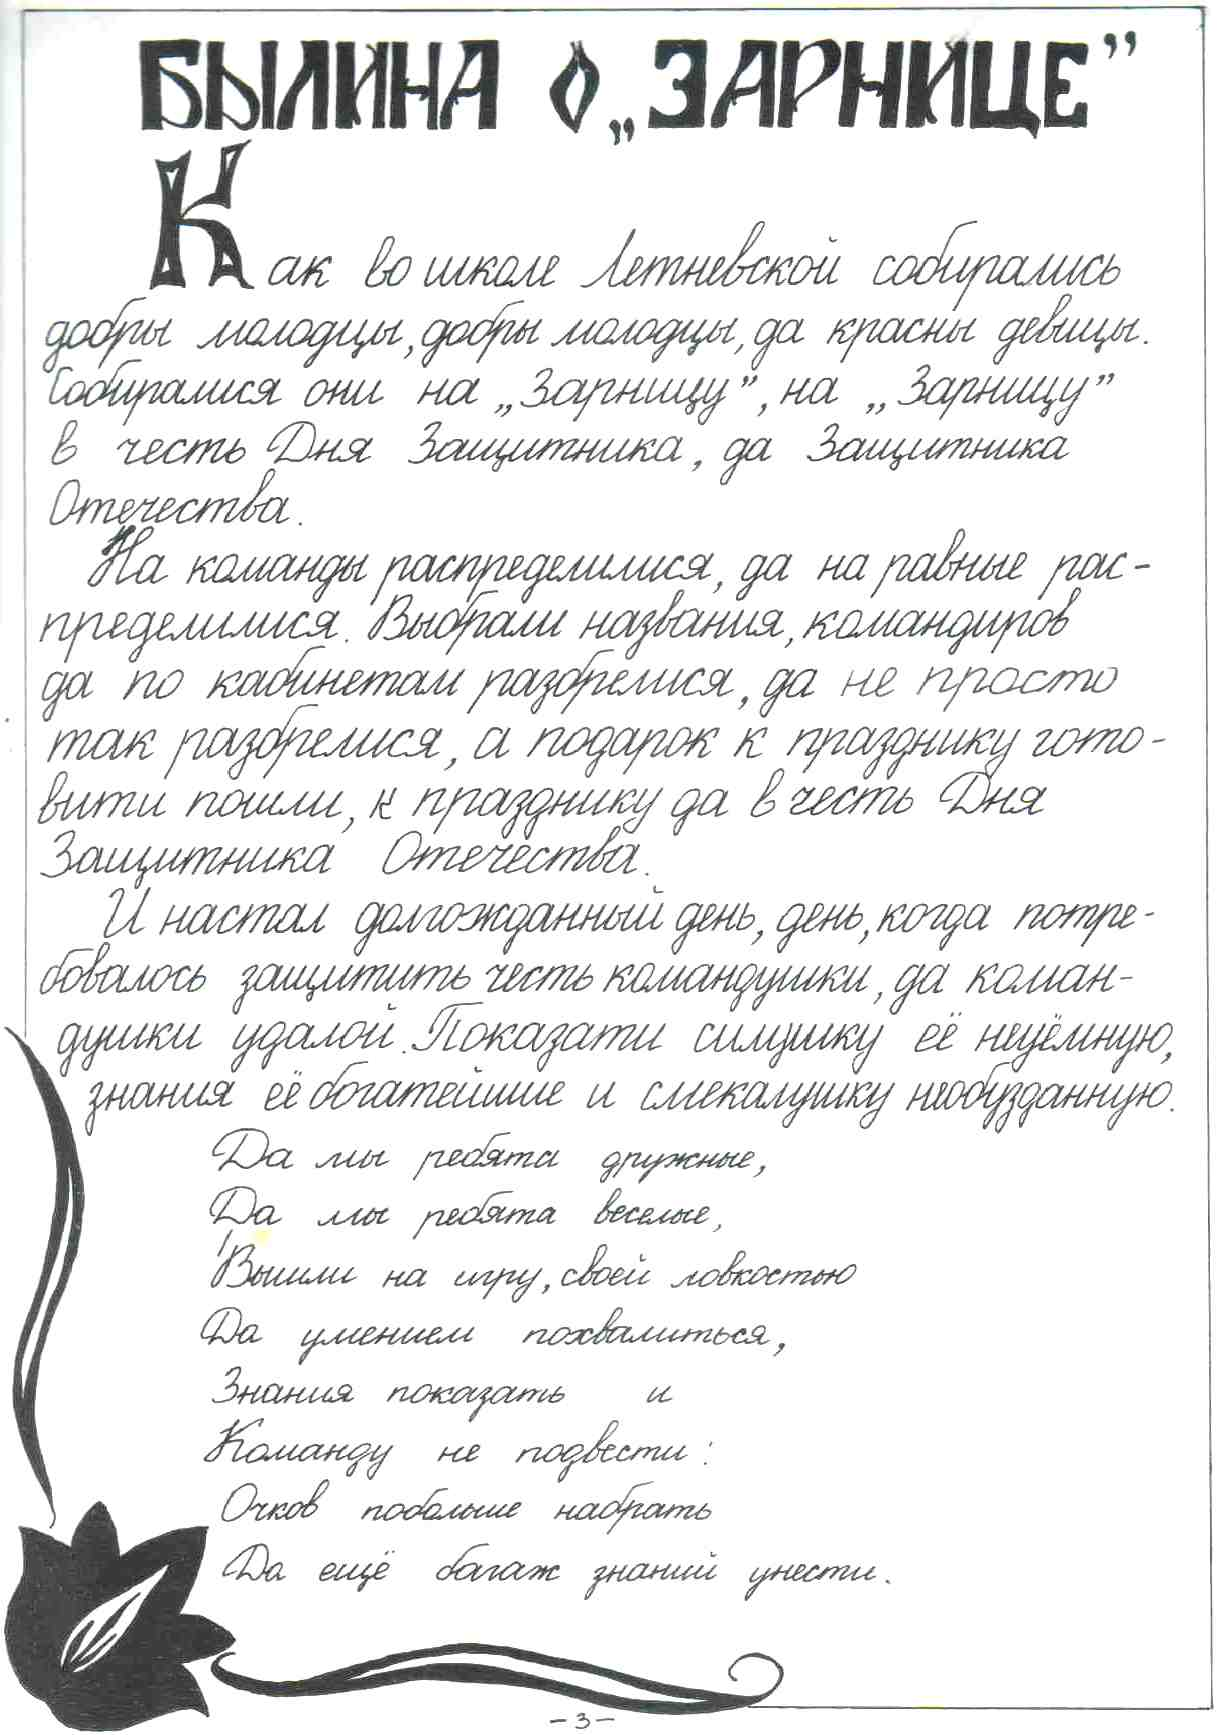 БЫЛИНА О „ЗАРНИЦЕ”
Как во школе Летневской собирались
добры молодцы, добры молодцы, да красны девицы.
Собиралися они на „Зарницу”, на „Зарницу”
в честь Дня Защитника, да Защитника
Отечества.
На команды распределилися, да на равные рас-
пределилися. Выбрали названия, командиров
да по кабинетам разбрелися, да не просто
так разбрелися, а подарок к празднику гото-
вити пошли, к празднику да в честь Дня
Защитника Отечества.
И настал долгожданный день, день, когда потре-
бовалось защитить честь командушки, да коман-
душки удалой. Показати силушку её неуёмную,
знания её богатейшие и смекалушку необузданную.
Да мы ребята дружные,
Да мы ребята веселые,
Вышли на игру, своей ловкостью
Да умением похвалиться,
Знания показать и
Команду не подвести:
Очков побольше набрать
Да ещё багаж знаний унести.
-3-